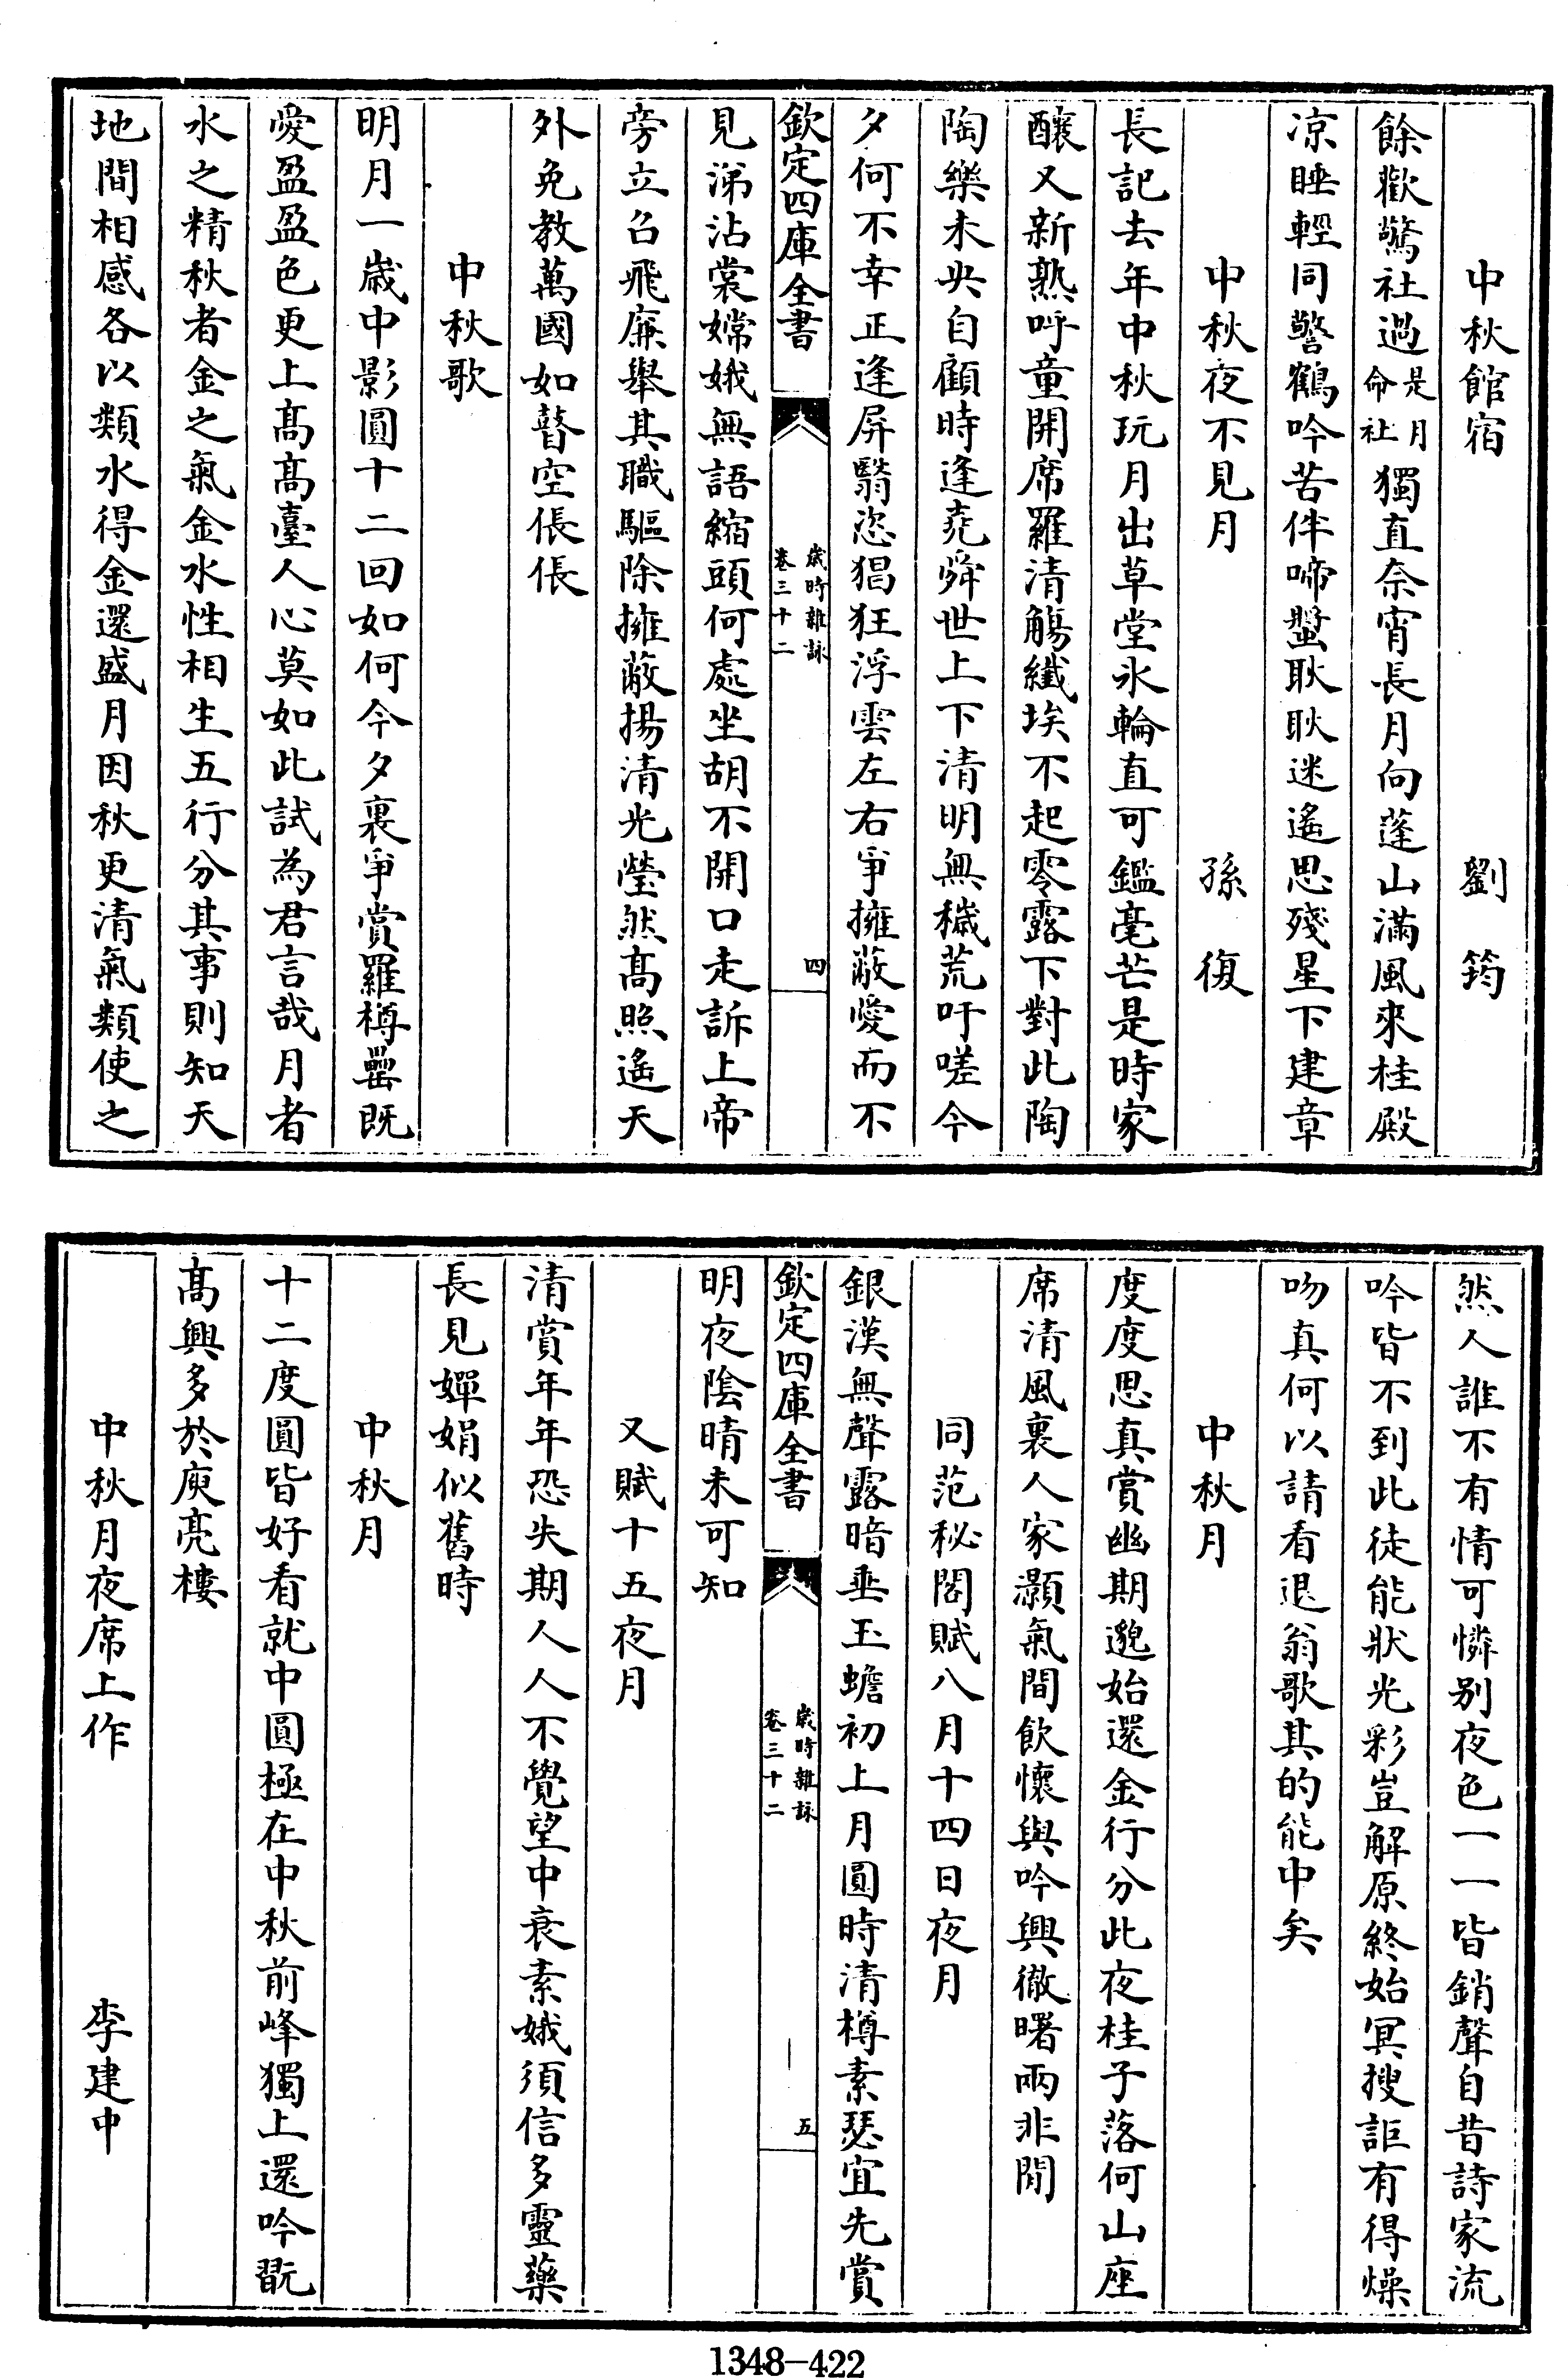 中秋館宿 劉筠
餘歡驚社過是月命社獨直奈宵長月向蓬山滿風來桂殿
凉睡輕同警鶴吟苦伴啼螿耿耿迷遙思殘星下建章
中秋夜不見月 孫復
長記去年中秋玩月出草堂氷輪直可鑑毫芒是時家
釀又新熟呼童開席羅清觴纖埃不起零露下對此陶
陶樂未央自顧時逢堯舜世上下清明無穢荒吁嗟今
夕何不幸正逢屏翳恣猖狂浮雲左右爭擁蔽愛而不
欽定四庫全書 歲時雜詠 卷三十二 四
見涕沾裳嫦娥無語縮頭何處坐胡不開口走訴上帝
旁立召飛廉舉其職驅除擁蔽揚清光瑩然髙照遙天
外免教萬國如瞽空倀倀
中秋歌
明月一歲中影圓十二回如何今夕裏爭賞羅樽罍既
愛盈盈色更上髙髙臺人心莫如此試為君言哉月者
水之精秋者金之氣金水性相生五行分其事則知天
地間相感各以類水得金還盛月因秋更清氣類使之
然人誰不有情可憐别夜色一一皆銷聲自昔詩家流
吟皆不到此徒能狀光彩豈解原終始冥搜詎有得燥
吻真何以請看退翁歌其的能中矣
中秋月
度度思真賞幽期邈始還金行分此夜桂子落何山座
席清風裏人家灝氣間飲懷與吟興徹曙兩非閒
同范秘閣賦八月十四日夜月
銀漢無聲露暗垂玉蟾初上月圓時清樽素瑟宜先賞
欽定四庫全書 歲時雜詠 卷三十二 五
明夜陰晴未可知
又賦十五夜月
清賞年年恐失期人人不覺望中衰素娥須信多靈藥
長見嬋娟似舊時
中秋月
十二度圓皆好看就中圓極在中秋前峰獨上還吟翫
髙興多於庾亮樓
中秋月夜席上作 李建中
1348-422